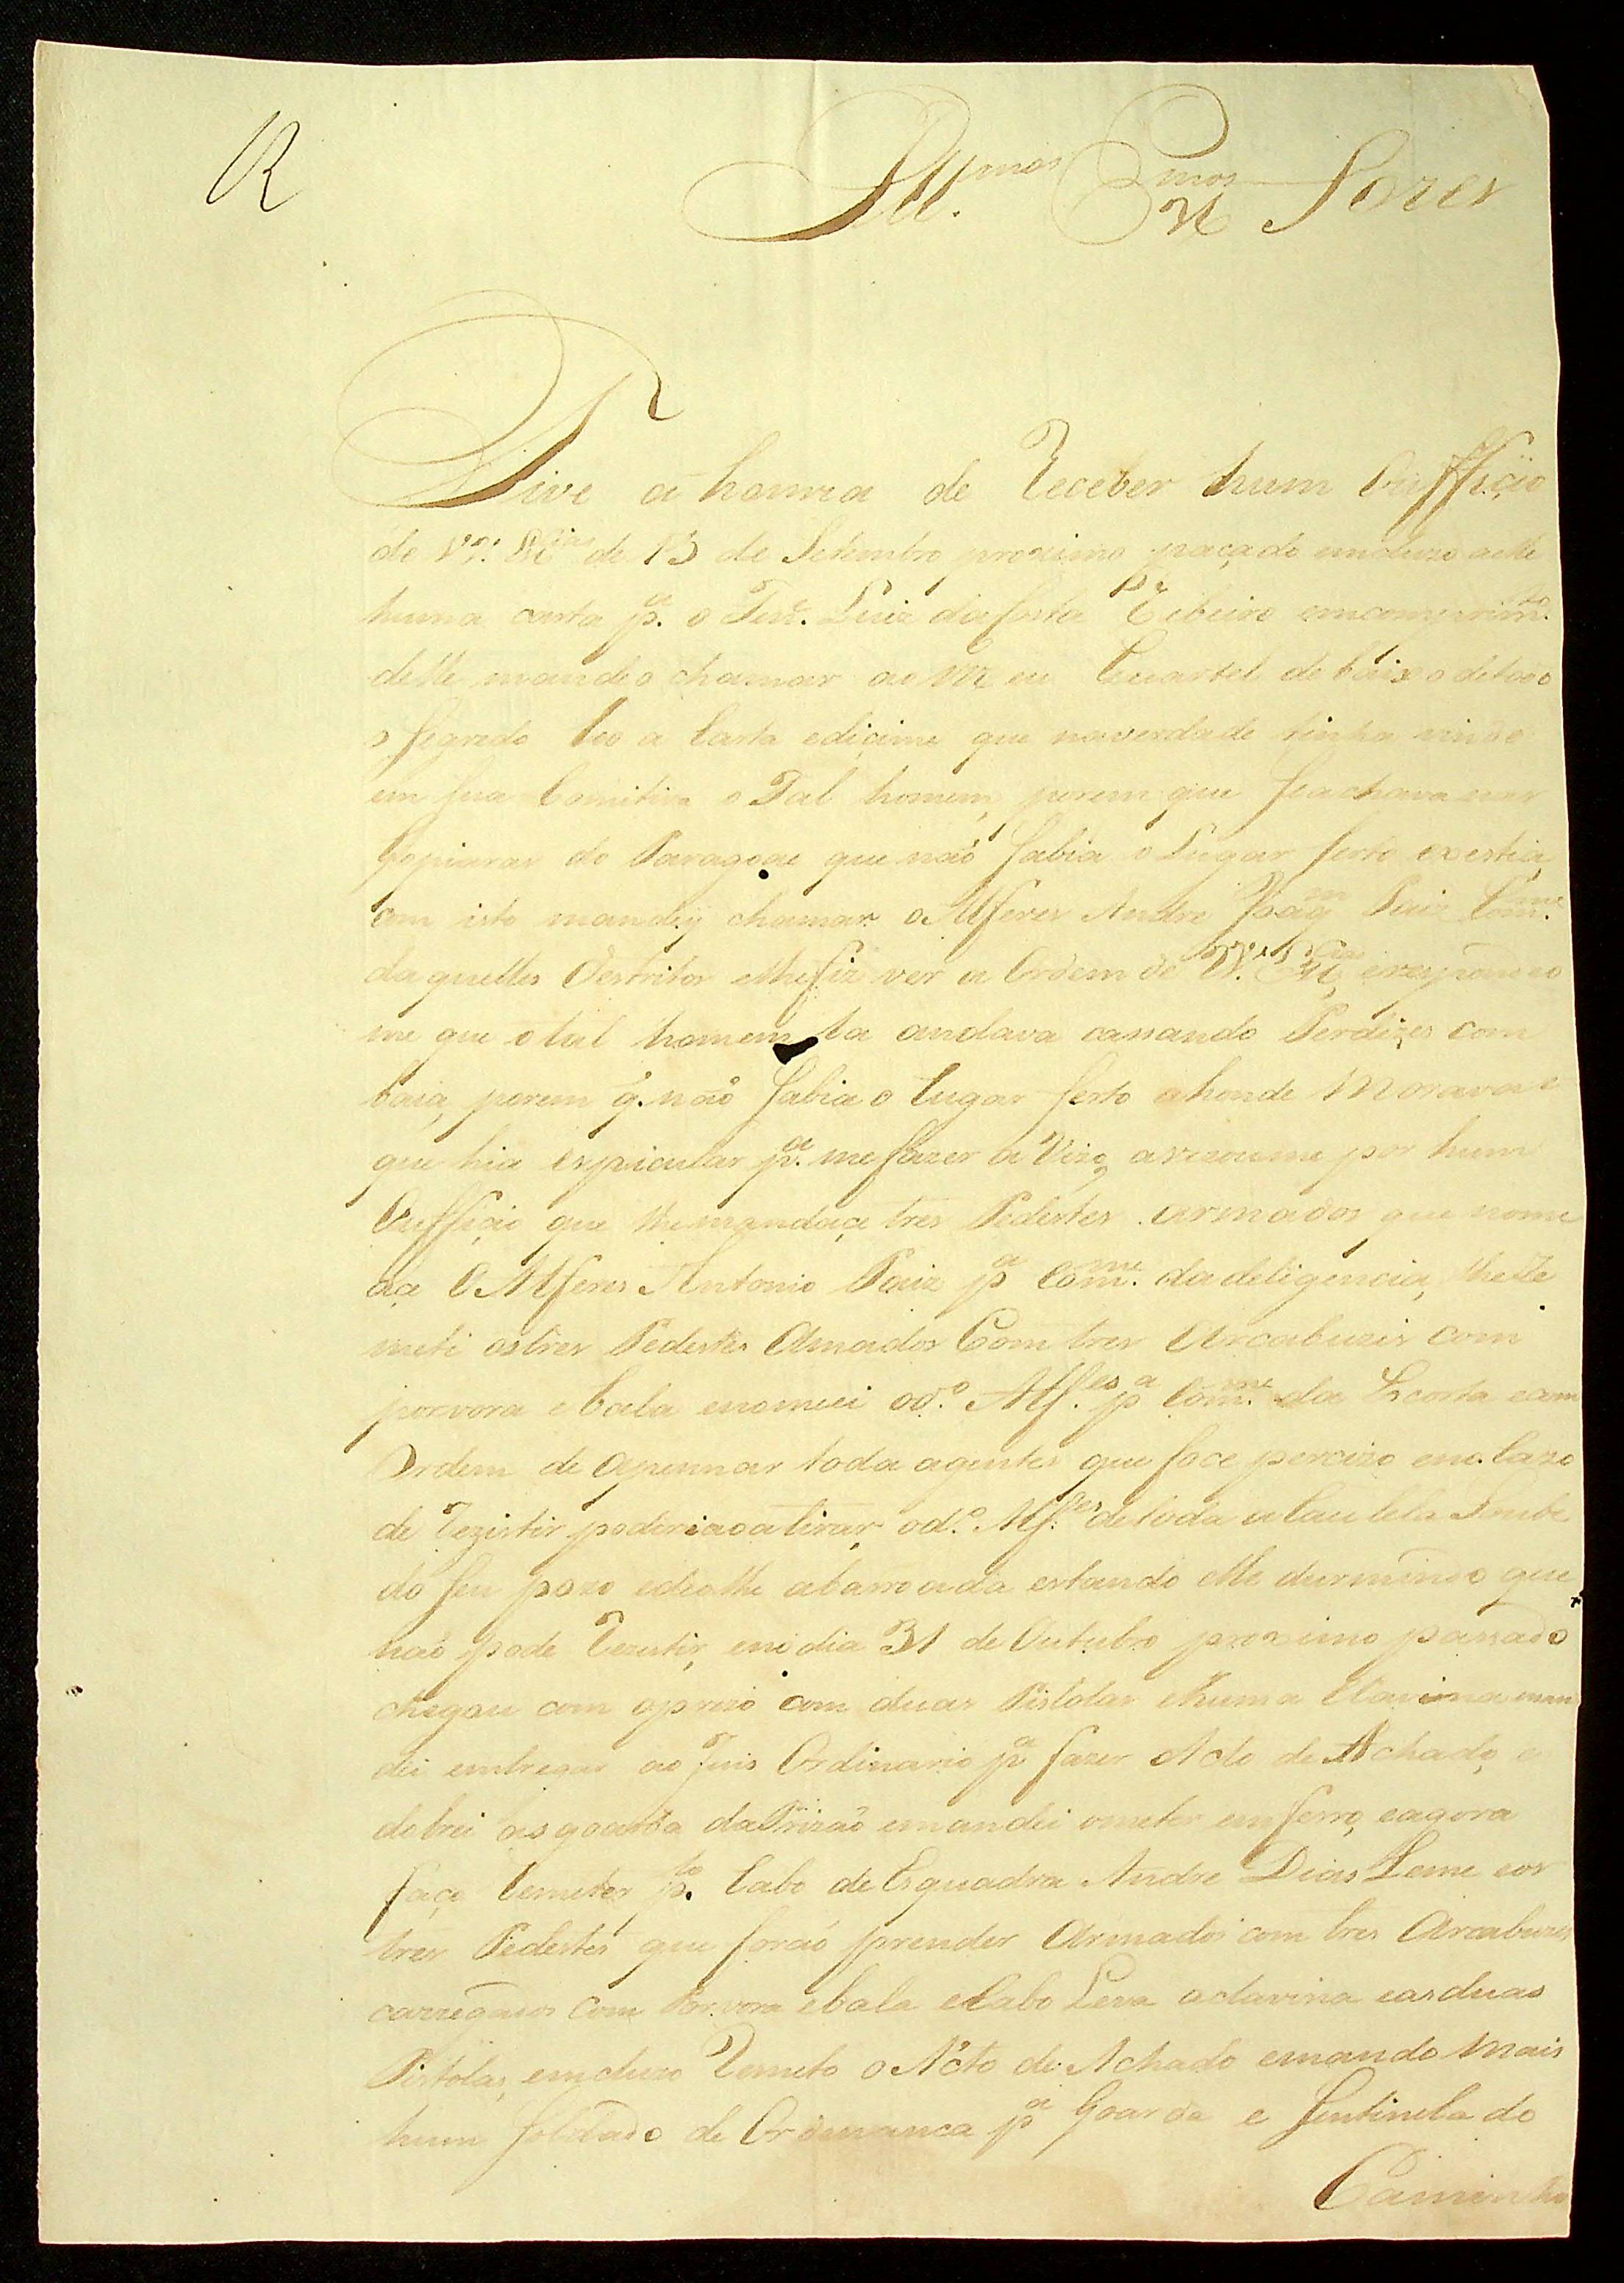 R
Ill.mos Ex.mos Snres
Tive a honrra de Receber hum Oufficio
de V.as Ex.cias de 13 de Setembro proximo paçado emcluzo a elle
huma carta p.a o Ten.e Luiz da Costa Ribeiro emcomprim.to
delle mandeo chamar ao Meu Cuartel de baixo de todo
o segredo leo a Carta ediçime que naverdade tinha vindo
em sua Comitiva o Tal homem, porem que seachava nas
do Paragoai que não sabia o Lugar serto exestia,
Com isto mandey chamar o Alferes Andre Joaq.m Paiz Com.me
daquelles Destritos elhefiz ver a Ordem de V.as Ex.cias erespondeo
me que otal homem la andava cassando Perdizes com
baia, porem q. não sabia o Lugar serto ahonde Morava e
que hia espicular p.a mefazer a Vizo, avizoume por hum
Oufficio que lhemandaçe tres Pedestes armados que nome
aça O Alferes Antonio Paiz p.a Com.me dadeligencia, lheRe
meti ostres Pedestes Amados Com tres Arcabuzes com
porvora e bala enomiei od.o Alf.es p.a Com.me da Escorta ecom
Ordem de apennar toda agentes que foce percizo eno cazo
de Rezistir poderiaoatirar, od.o Alf.es detoda aCautella Soube
do seu pozo edeolhe abarroada estando elle durmindo que
não pode Rezistir, eno dia 31 de Outubro proximo passado
chegou com oprezo com duas Pistolas ehuma Clavina man
dei entregar ao Juis Ordinario p.a fazer Acto de Achado, e
dobrei asgoarda daPrizão emandei ometer em ferro, eagora
faço Remeter p.lo Cabo de Esquadra Andre Dias Leme eos
tres Pedestes que forão prender Armados com tres Arcabuzes
carregados com Porvora ebala eCabo Leva aclavina easduas
Pistolas, emcluzo Remeto o Acto de Achado emando Mais
hum soldado de Ordenanca p.a Goarda e Sentinela do
Caminho